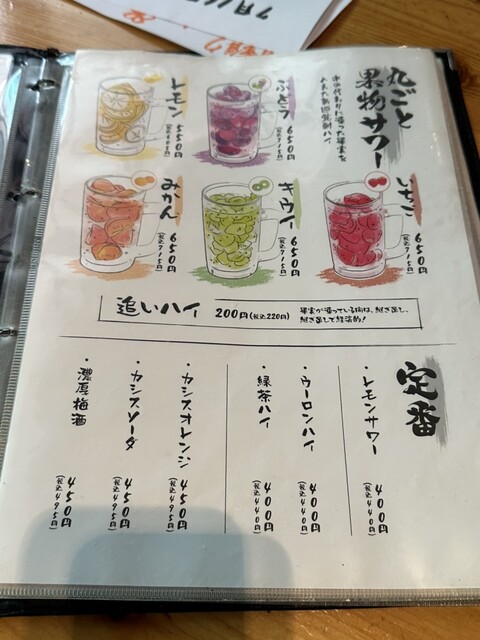 丸ごと
果物サワー
氷の代わりに凍った果実を
ぶどう
650円
(税込715円)
レモン
550円
(税込605円)
いちご
650円
(税込715円)
キウイ
650円
(税込715円)
みかん
650円
(税込715円)
追いハイ 200円(税込220円)
果実が凍っている間は、継ぎ足し、
継ぎ足しで経済的!
定番
・レモンサワー 400円
(税込440円)
・ウーロンハイ 400円
(税込440円)
・緑茶ハイ 400円
(税込440円)
・カシスオレンジ 450円
(税込495円)
・カシスソーダ 450円
(税込495円)
・濃厚梅酒 450円
(税込495円)